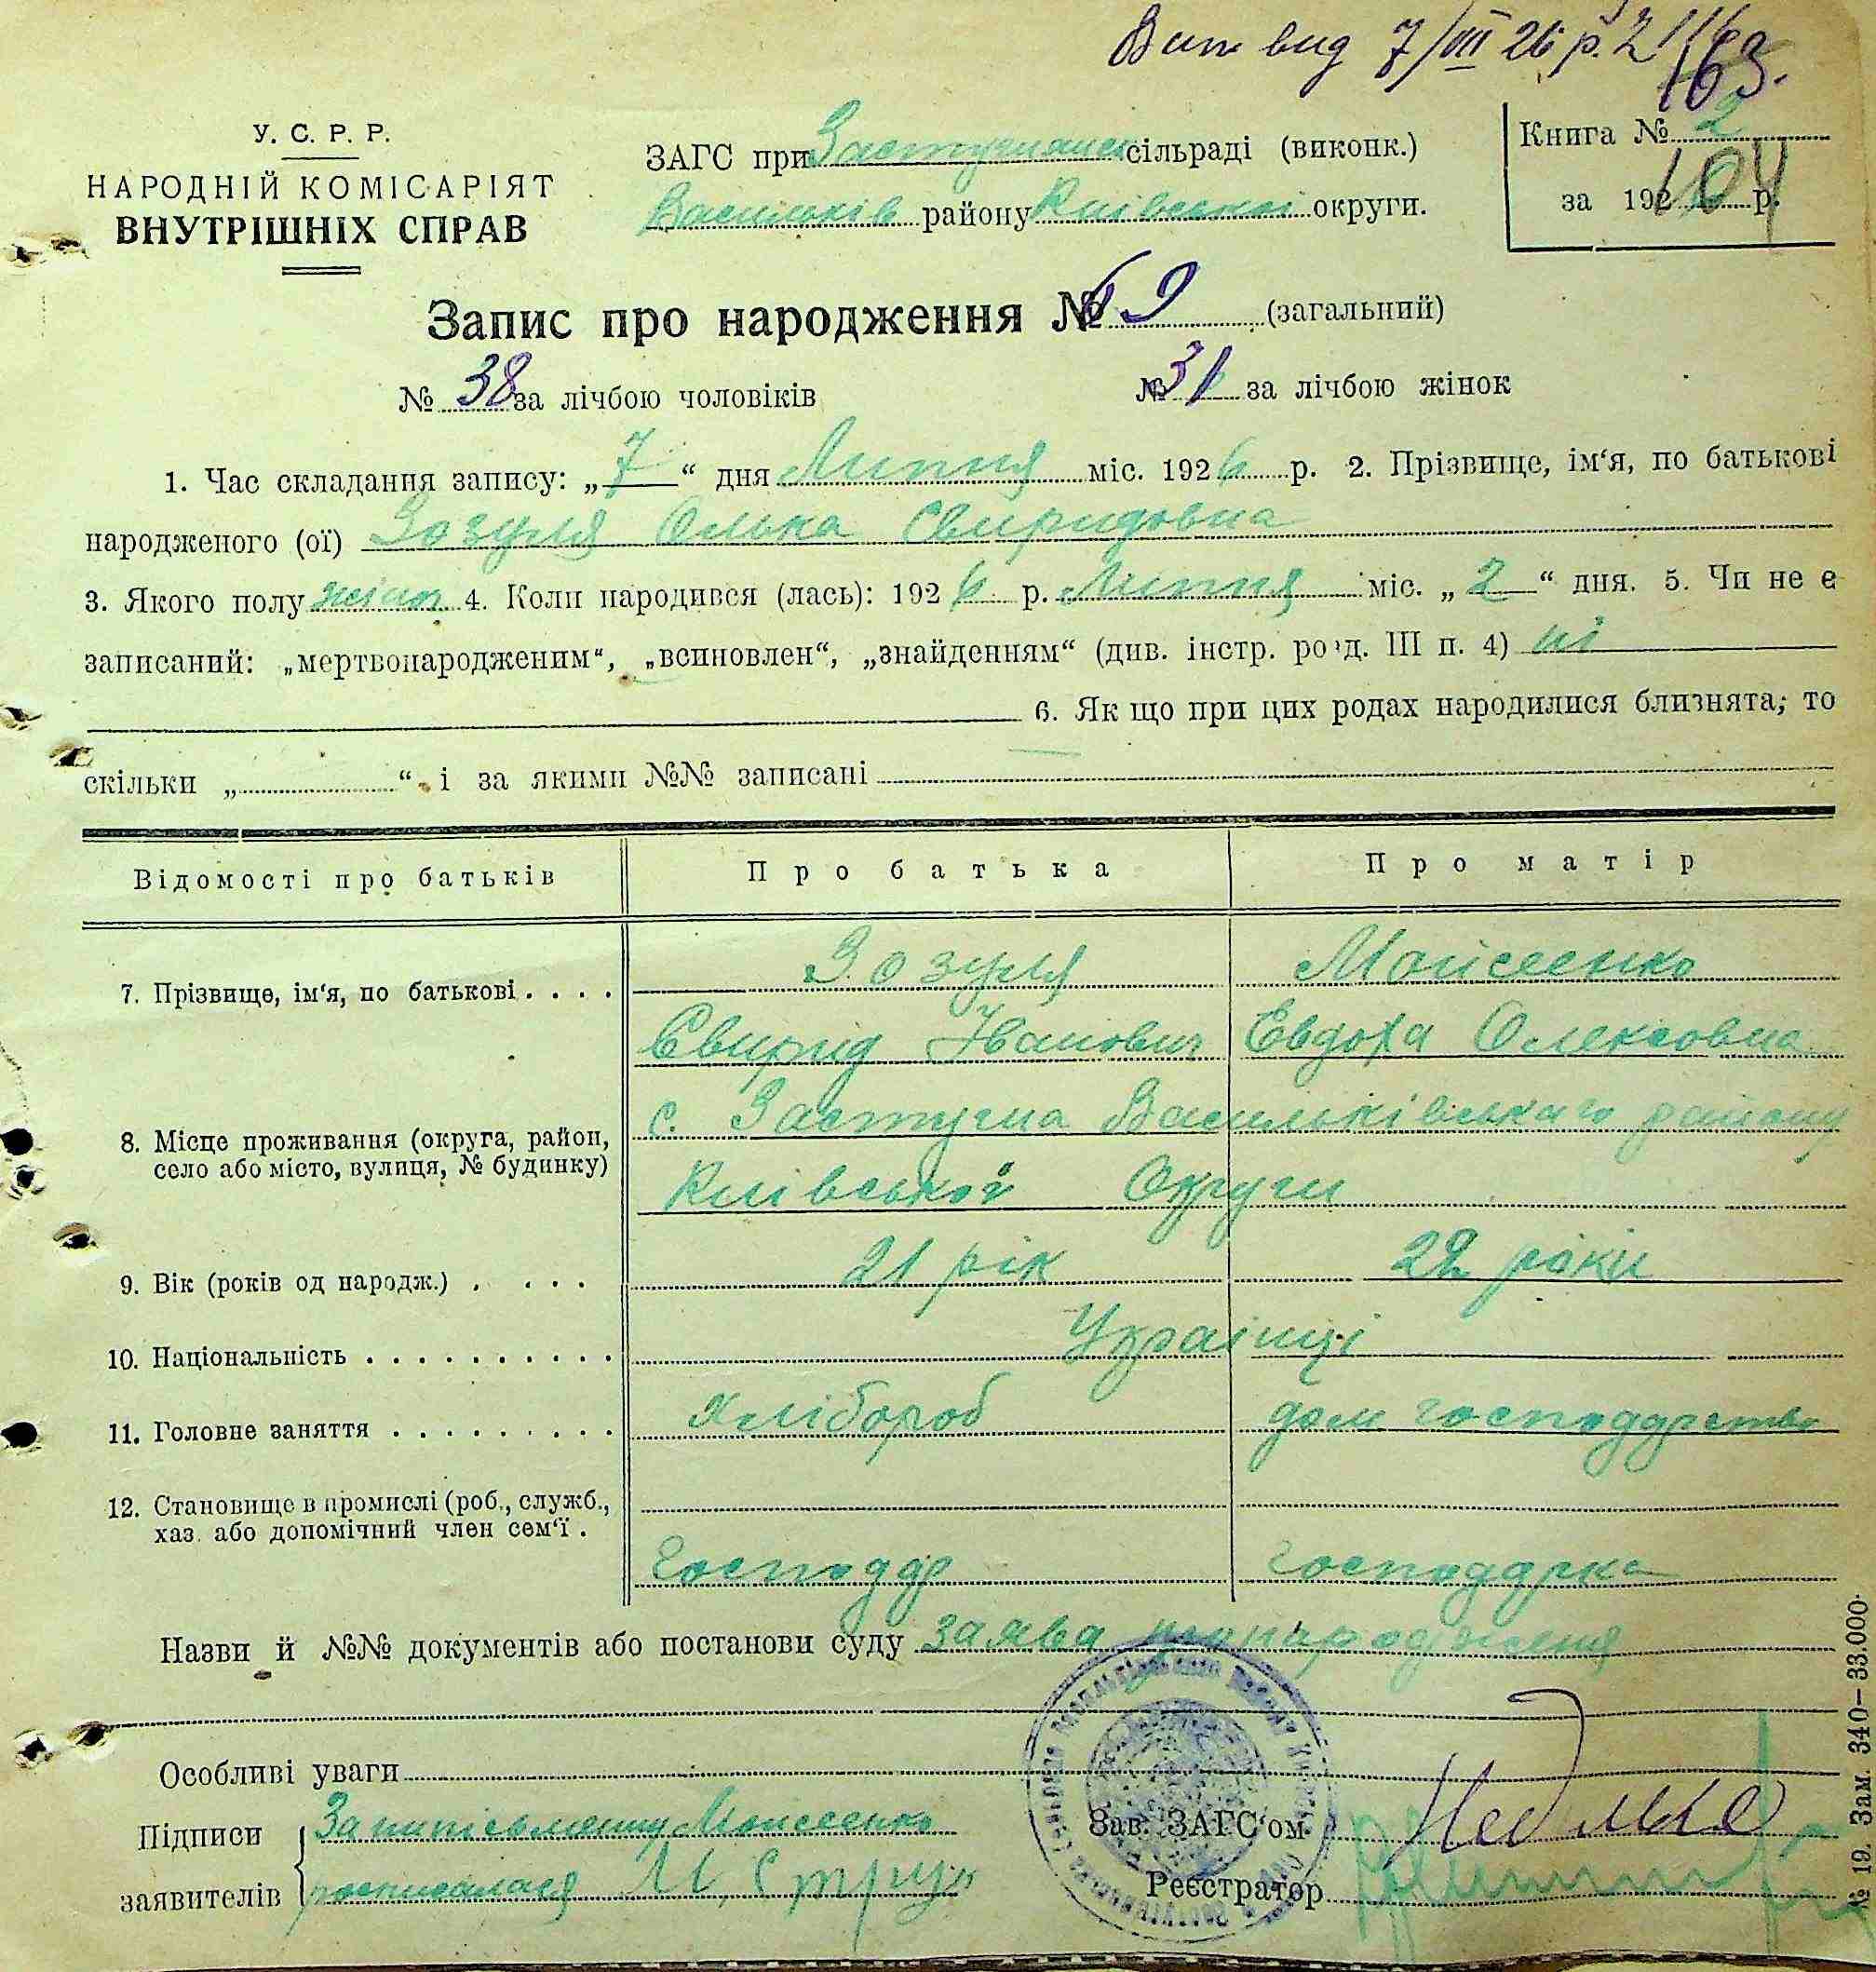 Вип вид 7/VII 26 р. 2
163.
У. С. Р. Р.
НАРОДНІЙ КОМІСАРІЯТ
ВНУТРІШНІХ СПРАВ
ЗАГС при Застугнянск сільраді (виконк.)
Васильків району Київської округи.
Книга № 2
за 1926 р.
104
Запис про народження № 69 (загальний)
№ 38 за лічбою чоловіків № 31 за лічбою жінок
1. Час складання запису: „7“ дня Липня міс. 1926 р. 2. Прізвище, ім‘я, по батькові
народженого (ої) Зозуля Олька Свиридовна
3. Якого полу жіноч 4. Коли народився (лась): 1926 р. Липня міс. „2“ дня. 5. Чи не є
записаний: „мертвонародженим“, „всиновлен“, „знайденням“ (див. інстр. розд. III п. 4) ні
6. Як що при цих родах народилися близнята; то
скільки „ “ і за якими №№ записані
Відомості про батьків Про батька Про матір
7. Прізвище, ім‘я, по батькові . . . . Зозуля Моисеенко
Свирид Іванович Евдоха Олексовна
8. Місце проживання (округа, район, с. Застугна Васильківськаго району
село або місто, вулиця, № будинку) Київської Округи
9. Вік (років од народж.) . . . . 21 рік 22 роки
10. Національність . . . . . . . . . . Українці
11. Головне заняття . . . . . . . . . Хлібороб дом господарство
12. Становище в промислі (роб., служб.,
хаз. або допомічний член сем‘ї .
Господар господарка
Назви й №№ документів або постанови суду заява про народження
Особливі уваги
Підписи За нипісьменну Моисеенко Зав. ЗАГС‘ом
заявителів росписалася М. Струк Реєстратор
№ 19. Зам. 340—33.000.